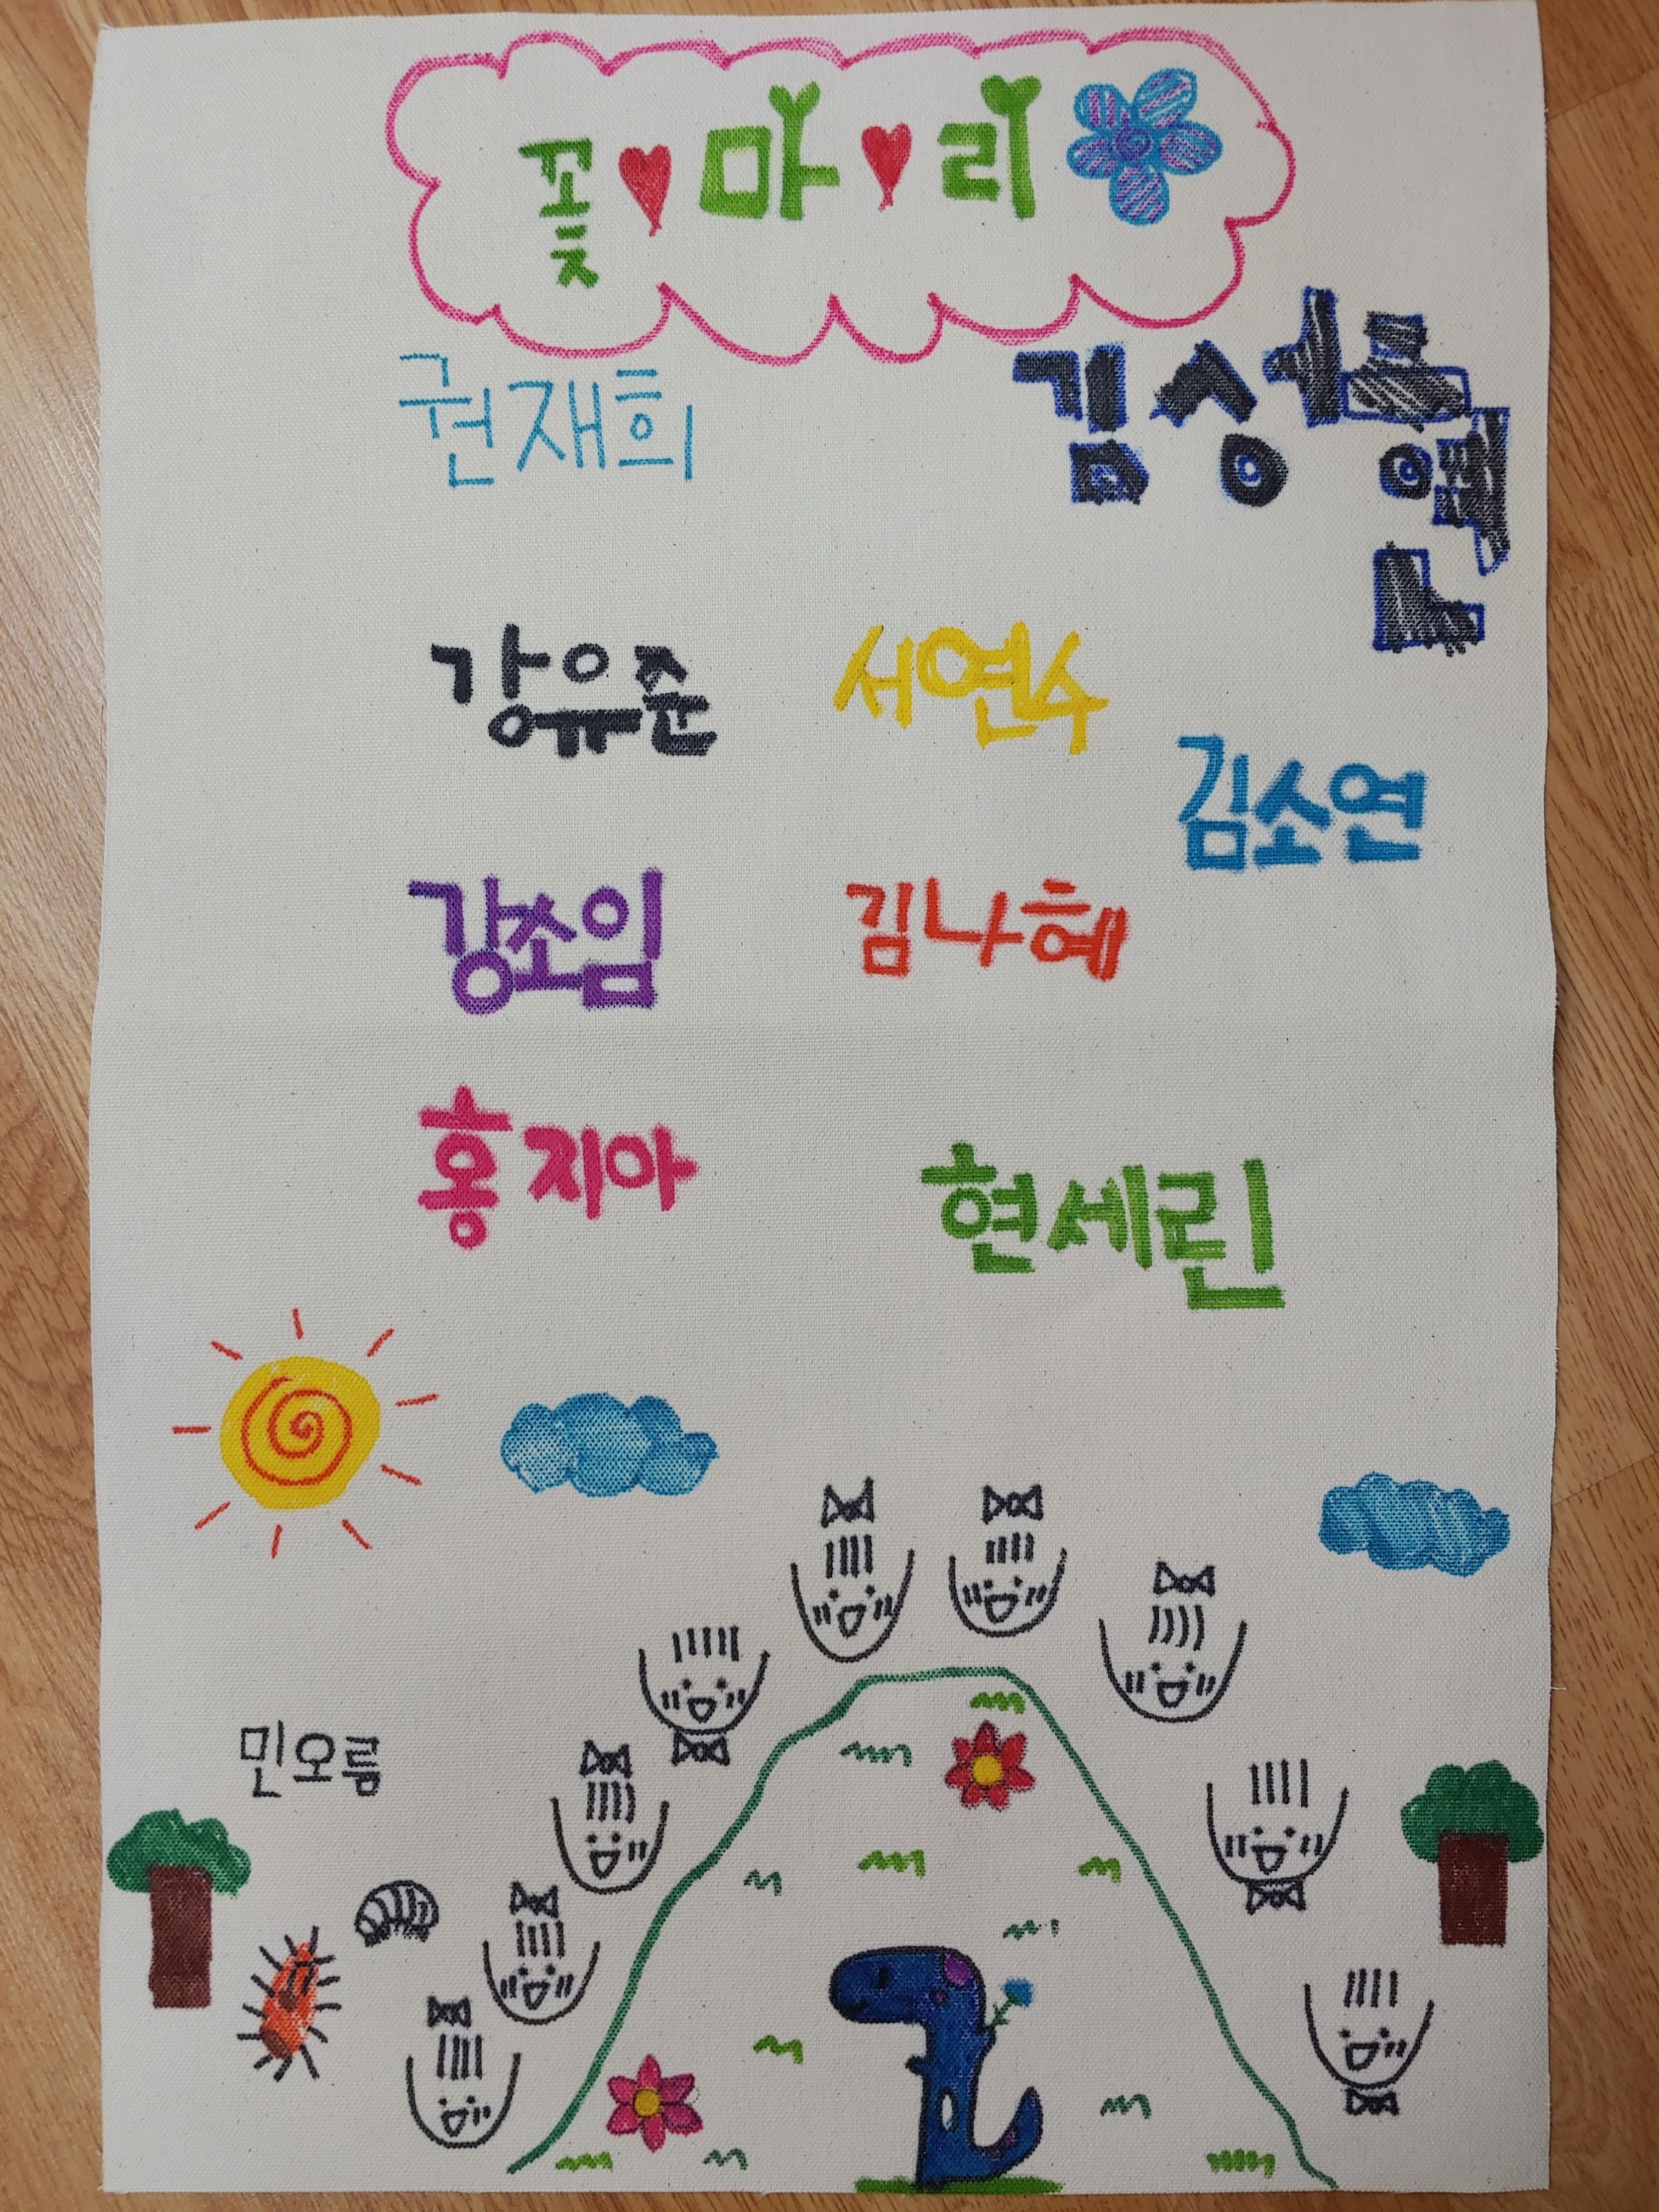 꽃♥마♥리
권재희 김성현
강유준 서연수
김소연
강소임 김나혜
홍지아 현세린
민오름